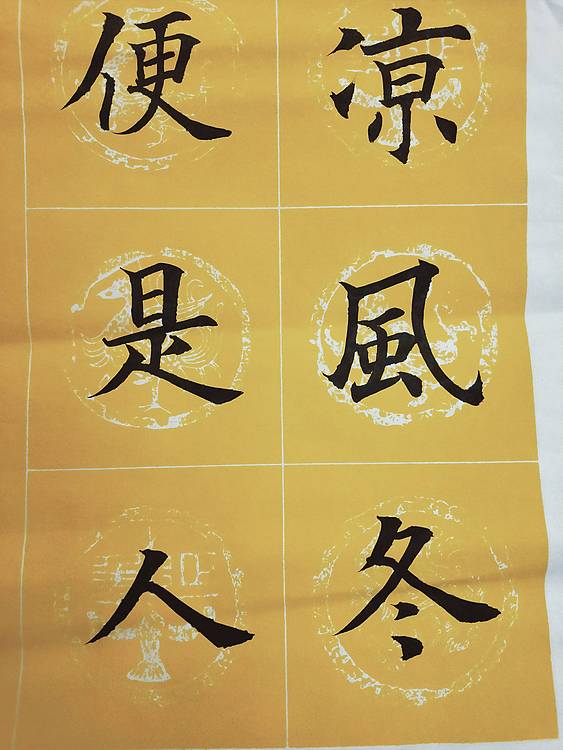 凉風冬
便是人